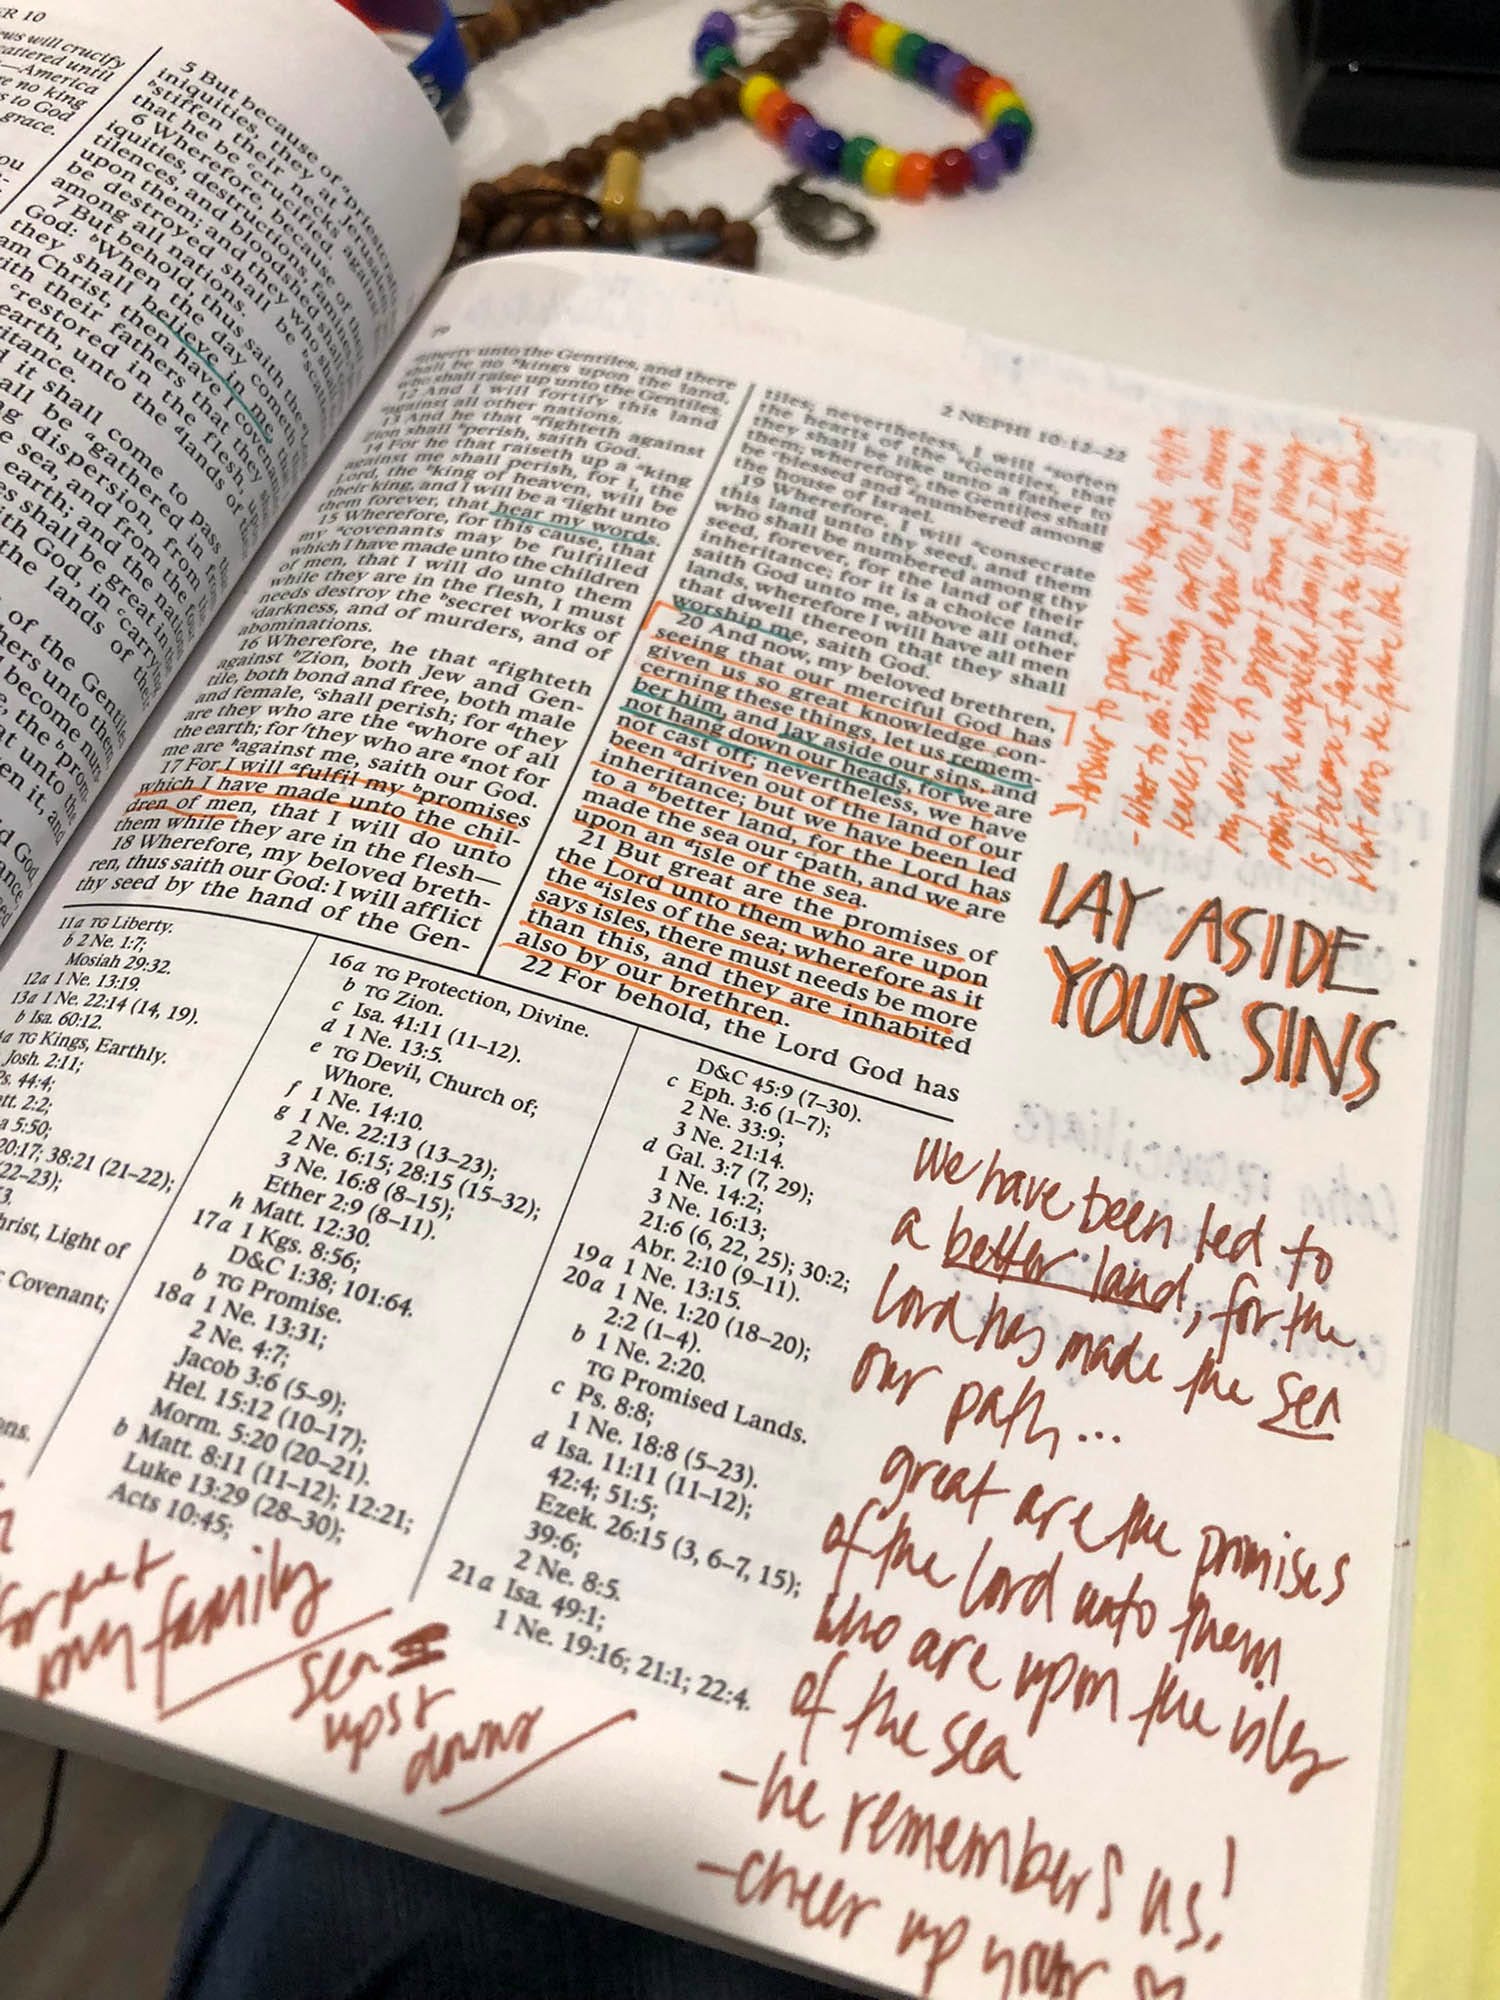 ER 10
ews will crucify
cattered until
—America
e no king
s to God
grace.
5 But because of priestcrafts
iniquities, they at Jerusalem
bstiffen their necks against
that he be ccrucified.
6 Wherefore, because of their
iquities, destructions, famines,
tilences, and bloodshed shall
upon them; and they who shall
be destroyed shall be bscattered
among all nations.
7 But behold, thus saith the Lord
God: bWhen the day cometh
they shall believe in me,
am Christ, then have I covenanted
with their fathers that they
crestored in the flesh, upon
earth, unto the dlands of their
itance.
it shall come to pass
all be agathered in from
ng dispersion, from the
e sea, and from the four
earth; and the nations
es shall be great in the
ith God, in ccarrying
the lands of their
of the Gentiles
hers unto them,
become nurs-
, the bprom-
at unto the
en it, and
2 NEPHI 10:12–22
liberty unto the Gentiles, and there
shall be no akings upon the land,
who shall raise up unto the Gentiles.
12 And I will fortify this land
aagainst all other nations.
13 And he that afighteth against
Zion shall bperish, saith God.
14 For he that raiseth up a aking
against me shall perish, for I, the
Lord, the bking of heaven, will be
their king, and I will be a clight unto
them forever, that hear my words.
15 Wherefore, for this cause, that
my acovenants may be fulfilled
which I have made unto the children
of men, that I will do unto them
while they are in the flesh, I must
needs destroy the bsecret works of
cdarkness, and of murders, and of
abominations.
16 Wherefore, he that afighteth
against bZion, both Jew and Gen-
tile, both bond and free, both male
and female, cshall perish; for dthey
are they who are the ewhore of all
the earth; for fthey who are gnot for
me are hagainst me, saith our God.
17 For I will afulfil my bpromises
which I have made unto the chil-
dren of men, that I will do unto
them while they are in the flesh—
18 Wherefore, my beloved breth-
ren, thus saith our God: I will afflict
thy seed by the hand of the Gen-
tiles; nevertheless, I will asoften
the hearts of the bGentiles, that
they shall be like unto a father to
them; wherefore, the Gentiles shall
be cblessed and dnumbered among
the house of Israel.
19 Wherefore, I will aconsecrate
this land unto thy seed, and them
who shall be numbered among thy
seed, forever, for the land of their
inheritance; for it is a choice land,
saith God unto me, above all other
lands, wherefore I will have all men
that dwell thereon that they shall
worship me, saith God.
20 And now, my beloved brethren,
seeing that our merciful God has
given us so great knowledge con-
cerning these things, let us remem-
ber him, and lay aside our sins, and
not hang down our heads, for we are
not cast off; nevertheless, we have
been adriven out of the land of our
inheritance; but we have been led
to a bbetter land, for the Lord has
made the sea our cpath, and we are
upon an disle of the sea.
21 But great are the promises of
the Lord unto them who are upon
the aisles of the sea; wherefore as it
says isles, there must needs be more
than this, and they are inhabited
also by our brethren.
22 For behold, the Lord God has
11a TG Liberty.
b 2 Ne. 1:7;
Mosiah 29:32.
12a 1 Ne. 13:19.
13a 1 Ne. 22:14 (14, 19).
b Isa. 60:12.
TG Kings, Earthly.
Josh. 2:11;
Ps. 44:4;
tt. 2:2;
a 5:50;
20:17; 38:21 (21–22);
(22–23);
hrist, Light of
Covenant;
16a TG Protection, Divine.
b TG Zion.
c Isa. 41:11 (11–12).
d 1 Ne. 13:5.
e TG Devil, Church of;
Whore.
f 1 Ne. 14:10.
g 1 Ne. 22:13 (13–23);
2 Ne. 6:15; 28:15 (15–32);
3 Ne. 16:8 (8–15);
Ether 2:9 (8–11).
h Matt. 12:30.
17a 1 Kgs. 8:56;
D&C 1:38; 101:64.
b TG Promise.
18a 1 Ne. 13:31;
2 Ne. 4:7;
Jacob 3:6 (5–9);
Hel. 15:12 (10–17);
Morm. 5:20 (20–21).
b Matt. 8:11 (11–12); 12:21;
Luke 13:29 (28–30);
Acts 10:45;
D&C 45:9 (7–30).
c Eph. 3:6 (1–7);
2 Ne. 33:9;
3 Ne. 21:14.
d Gal. 3:7 (7, 29);
1 Ne. 14:2;
3 Ne. 16:13;
21:6 (6, 22, 25); 30:2;
Abr. 2:10 (9–11).
19a 1 Ne. 13:15.
20a 1 Ne. 1:20 (18–20);
2:2 (1–4).
b 1 Ne. 2:20.
TG Promised Lands.
c Ps. 8:8;
1 Ne. 18:8 (5–23).
d Isa. 11:11 (11–12);
42:4; 51:5;
Ezek. 26:15 (3, 6–7, 15);
39:6;
2 Ne. 8:5.
21a Isa. 49:1;
1 Ne. 19:16; 21:1; 22:4.
Answer to prayer in the temple
- What to do? Feeling conflict
teachings
my desire to
LAY ASIDE
YOUR SINS
We have been led to
a better land, for the
Lord has made the sea
our path...
great are the promises
of the Lord unto them
who are upon the isles
of the sea
- he remembers us!
- cheer up your ♡
my family
sea
ups &
downs